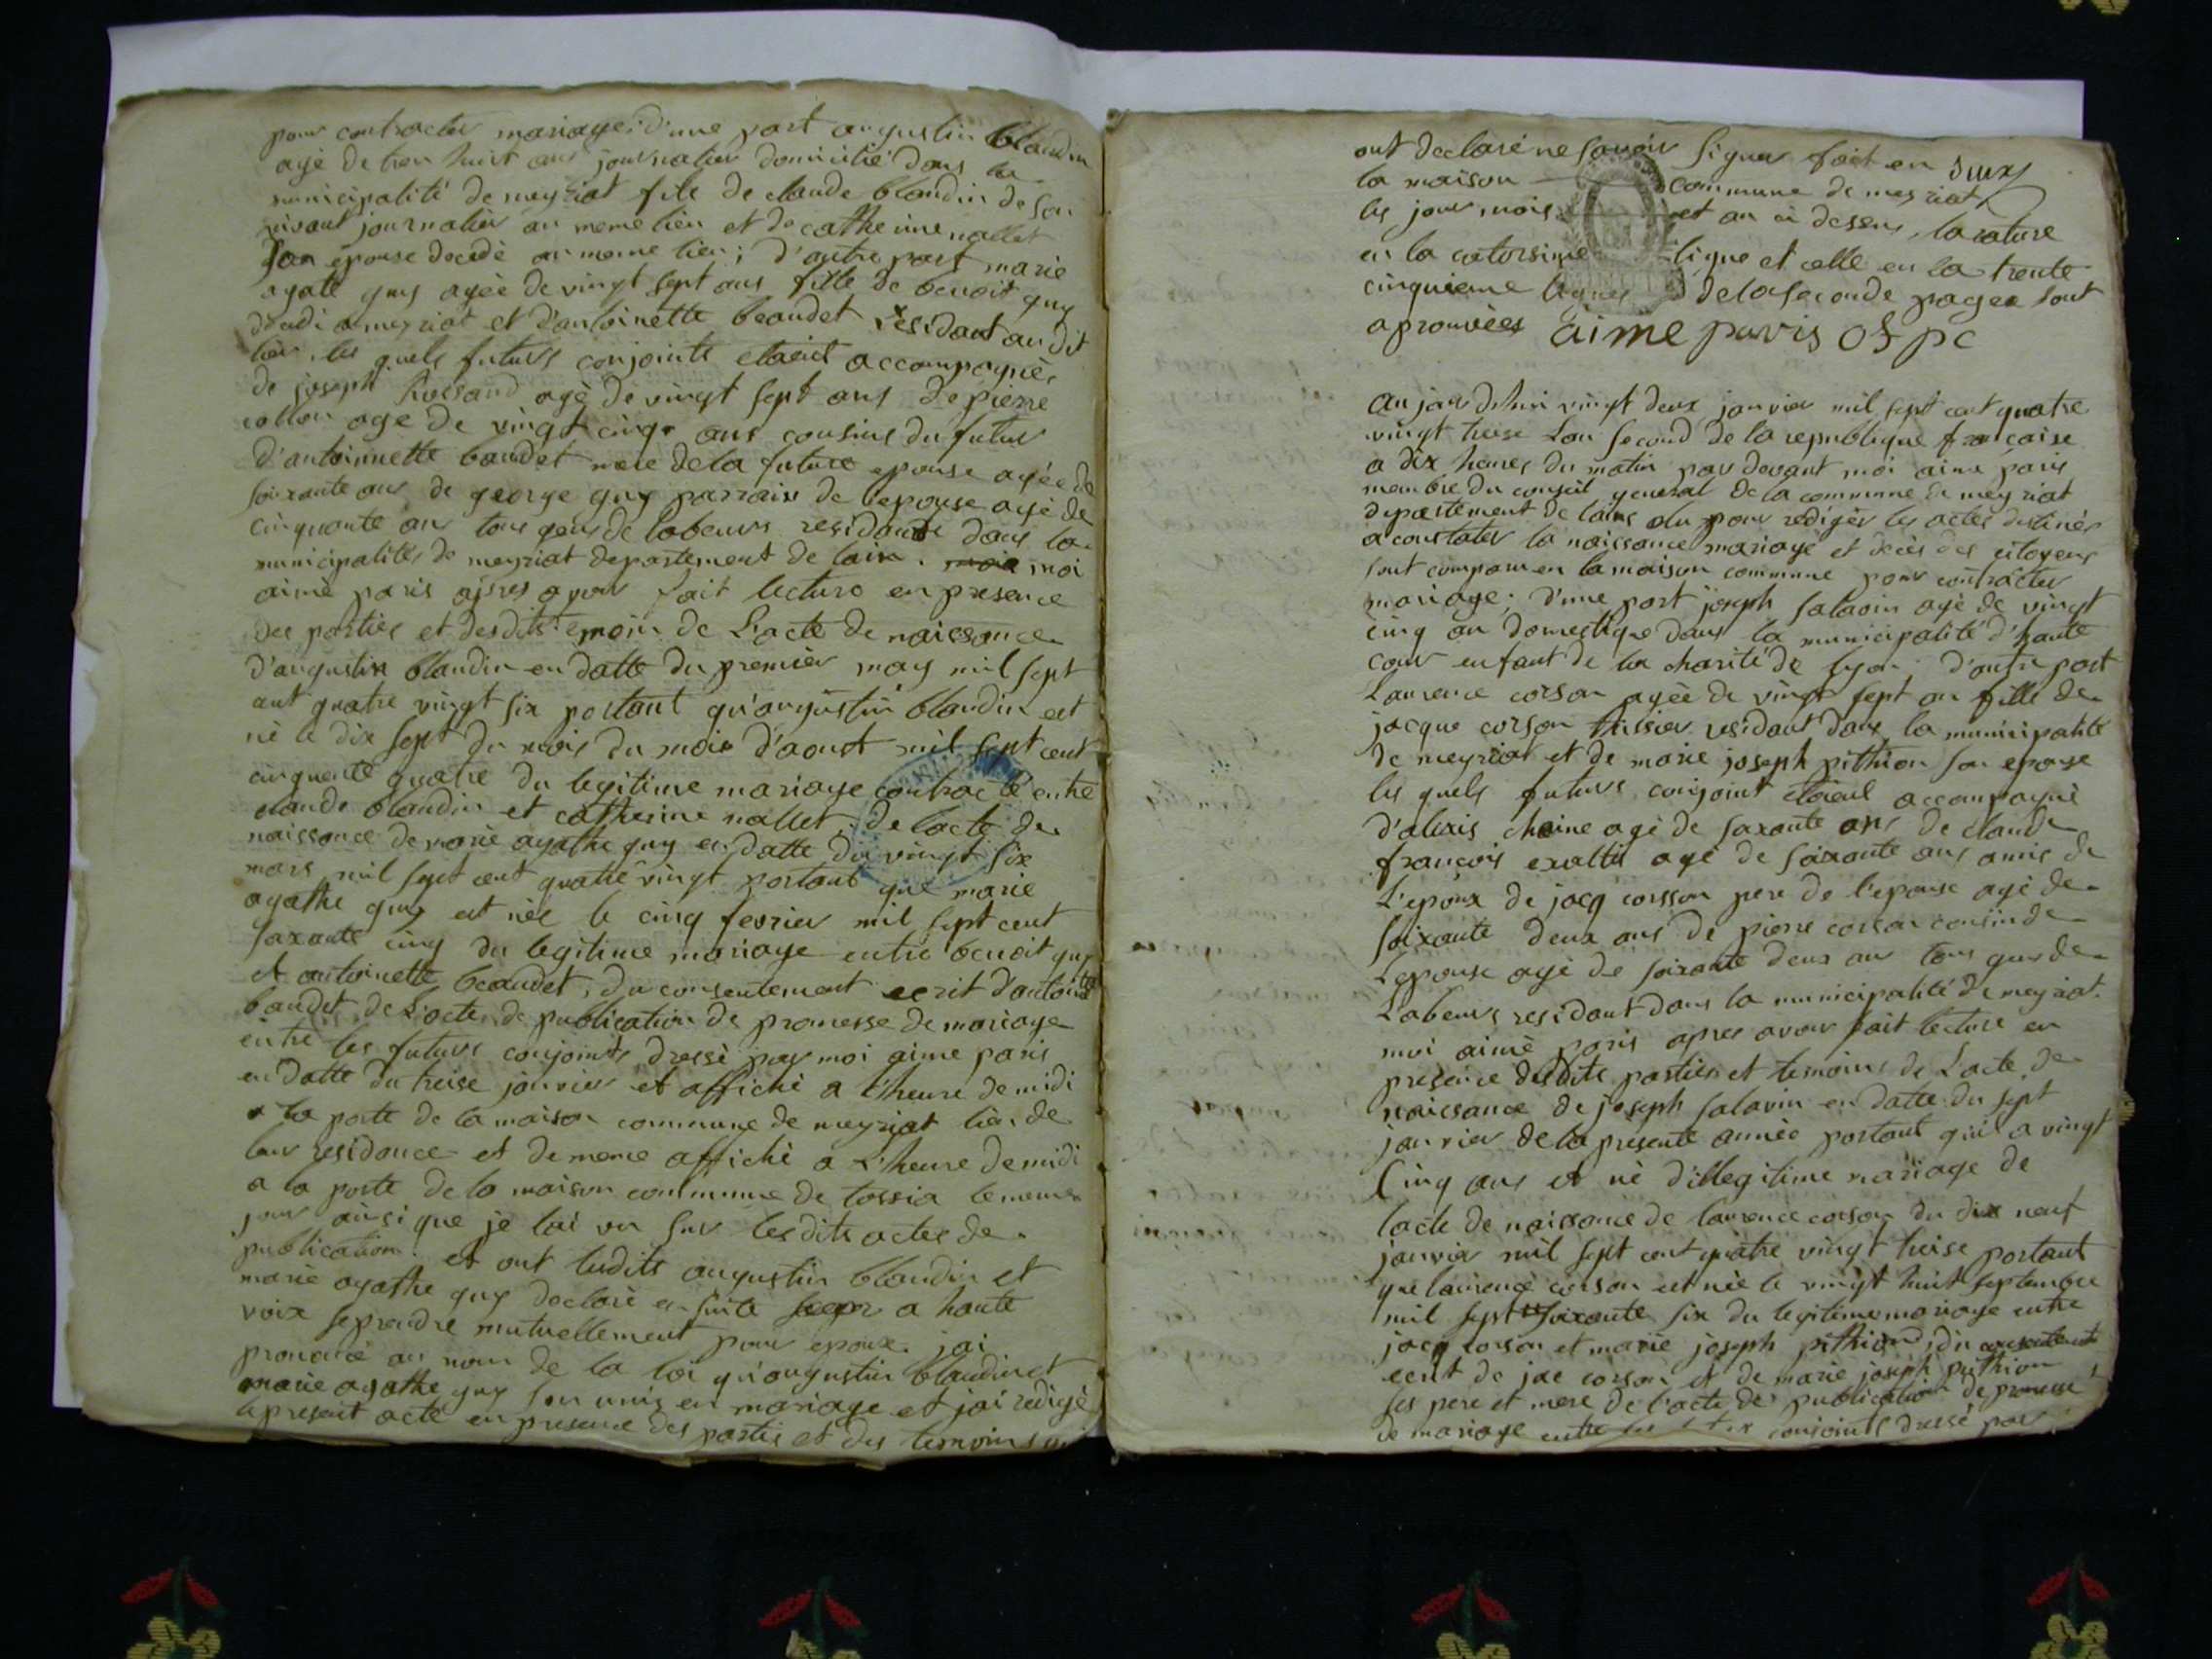 pour contracter mariage, d'une part augustin blandin
agé de tren huit ans journalier domicilié dans la
municipalité de meyriat fils de claude blandin de son
vivant journalier au meme lieu et de catherine nallet
son epouse decedé au meme lieu; d'autre part marie
agate guy agée de vingt sept ans fille de benoit guy
a meyriat et d'antoinette beaudet residant au dit
lieu, les quels futurs conjoints etaient accompagnés
de joseph agé de vingt sept ans de pierre
collon age de vingt cinq ans cousins du futur
d'antoinnette baudet mere de la future epouse agée de
soixante ans de george guy parrain de l'epouse agé de
cinquante an tous gens de labeurs residants dans la
municipalités de meyriat departement de lain. moi
aimé paris apres avoir fait lecture en presence
des parties et desdits temoin de L'acte de naissance
d'augustin blandin en datte du premier may mil sept
cent quatre vingt six portant qu'augustin blandin est
né le dix sept du mois du mois d'aoust mil sept cent
cinquente quatre du legitime mariage contracté entre
claude blandin et catherine nallet. de lacte de
naissance de marie agathe guy en datte du vingt six
mars mil sept cent quatre vingt portant que marie
agathe guy est née le cinq fevrier mil sept cent
saxante cinq du legitime mariage entre benoit guy
et antoinette beaudet, du consentement ecrit d'antoinette
baudet de L'acte de publication de promesse de mariage
entre les futurs conjoints dressé par moi aime paris
en datte du treise janvier et affiché a l'heure de midi
a la porte de la maison commune de meyriat lieu de
leur residance et de meme affiché a L'heure de midi
a la porte de la maison commune de tossia le meme
jour ainsi que je lai vu sur lesdits actes de
publication. et ont ludits augustin blandin et
marie agathe guy declaré en suite a haute
voix se prendre mutuellement pour epoux. jai
prononcé au nom de la loi qu'augustin blandin et
marie agathe guy son unis en mariage et jai redigé
le present acte en presence des parties et des temoins qui
ont declaré ne savoir signer fait en deux
la maison commune de meyriat
les jour mois et an ci dessus, la rature
en la catorsime ligne et celle en la trente
cinquieme lignes de la seconde pagee sont
aprouvées aimé paris of pc
au jourdhui vingt deux janvier mil sept cent quatre
vingt treise Lan second de la republique francaise
a dix heures du matin par devant moi aime paris
membre du conseil general de la commune de meyriat
departement de lains elu pour rediger les actes destinés
a constater la naissance mariage et deces des citoyens
sont comparu en la maison commune pour contracter
mariage; d'une part joseph salavin agé de vingt
cinq an domestique dans la municipalité d'haute
cour enfant de la charité de lyon d'autre part
Laurence corson agée de vingt sept an fille de
jacque corson tissier residant dans la municipalité
de meyriat et de marie joseph pithion son epouse
les quels futurs conjoint etaient accompagné
d'alexis chaine agé de saxante ans de claude
françois agé de soixante ans amis de
L'epoux de jacq corsson pere de l'epouse agé de
soixante deux ans de pierre corson cousin de
Lepouse agé de soixante deux an tous gens de
Labeurs residant dans la municipalité de meyriat.
moi aimé paris apres avoir fait lecture en
presence desdits parties et temoins de Lacte de
naissance de joseph salavin en datte du sept
janvier de la presente année portant qu'il a vingt
Cinq ans et né d'illegitime mariage de
lacte de naissance de laurence corson du dix neuf
janvier mil sept cent quatre vingt treise portant
que laurence corson est née le vingt huit septembre
mil sept cent soixante six du legitime mariage entre
jacq corson et marie joseph pithion, du consentement
ecrit de jac corson et de marie joseph pithion
ses pere et mere de l'acte de publication de promesse
de mariage entre les conjoints dressé par